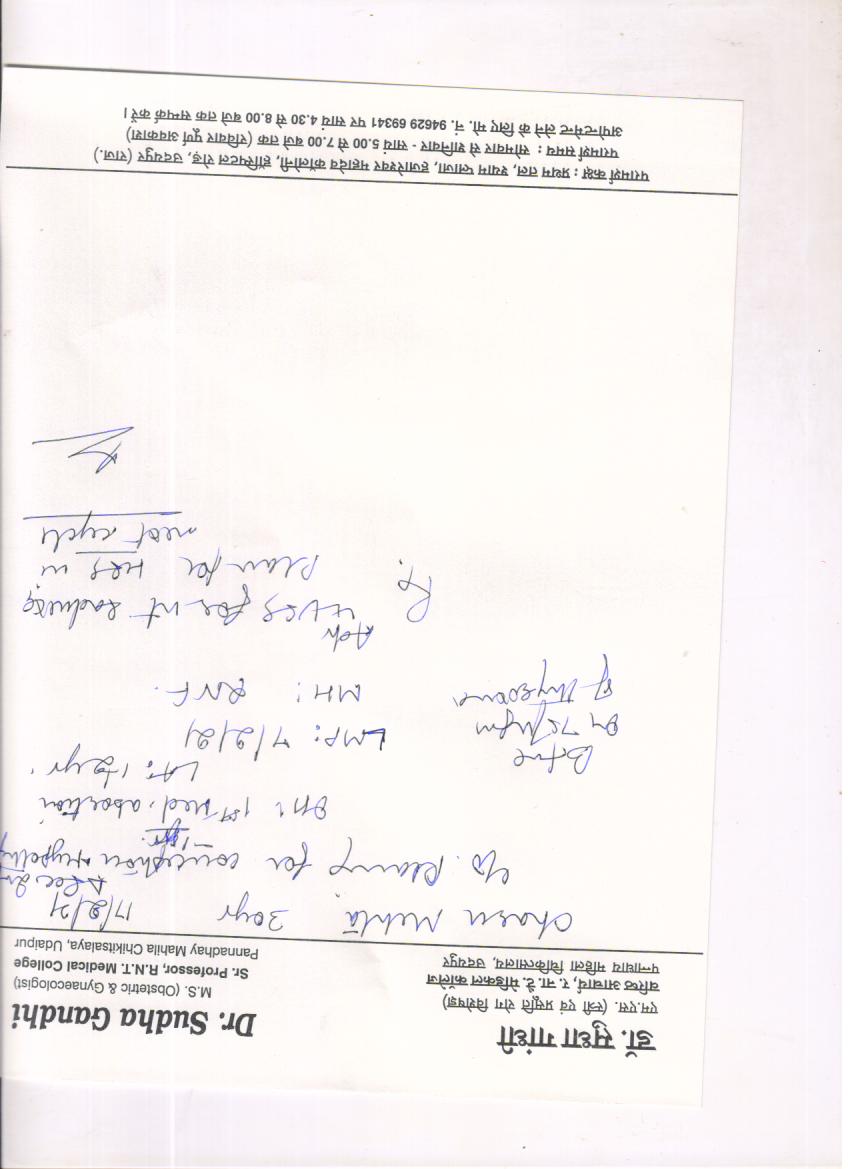 डॉ. सुधा गांधी
एम.एस. (स्त्री एवं प्रसूति रोग विशेषज्ञ)
वरिष्ठ आचार्य, र. ना. टै. मेडिकल कॉलेज
पन्नाधाय महिला चिकित्सालय, उदयपुर
Dr. Sudha Gandhi
M.S. (Obstetric & Gynaecologist)
Sr. Professor, R.N.T. Medical College
Pannadhay Mahila Chikitsalaya, Udaipur
Mehta 30yr 17/2/21
c/o. Planing for conception
1yr.
OH: 1st Med. abortion
LA: 1½yr.
LMP: 7/2/21
MH: RNF.
On 75 Mgm
of thyroxine
Adv
for
Plan for in
next cycle
परामर्श कक्ष : प्रथम तल, श्याम प्लाजा, हजारेश्वर महादेव कॉलोनी, हॉस्पिटल रोड़, उदयपुर (राज.)
परामर्श समय : सोमवार से शनिवार - सायं 5.00 से 7.00 बजे तक (रविवार पूर्ण अवकाश)
अपोन्टमेन्ट लेने के लिए मो. नं. 94629 69341 पर सायं 4.30 से 8.00 बजे तक सम्पर्क करें।